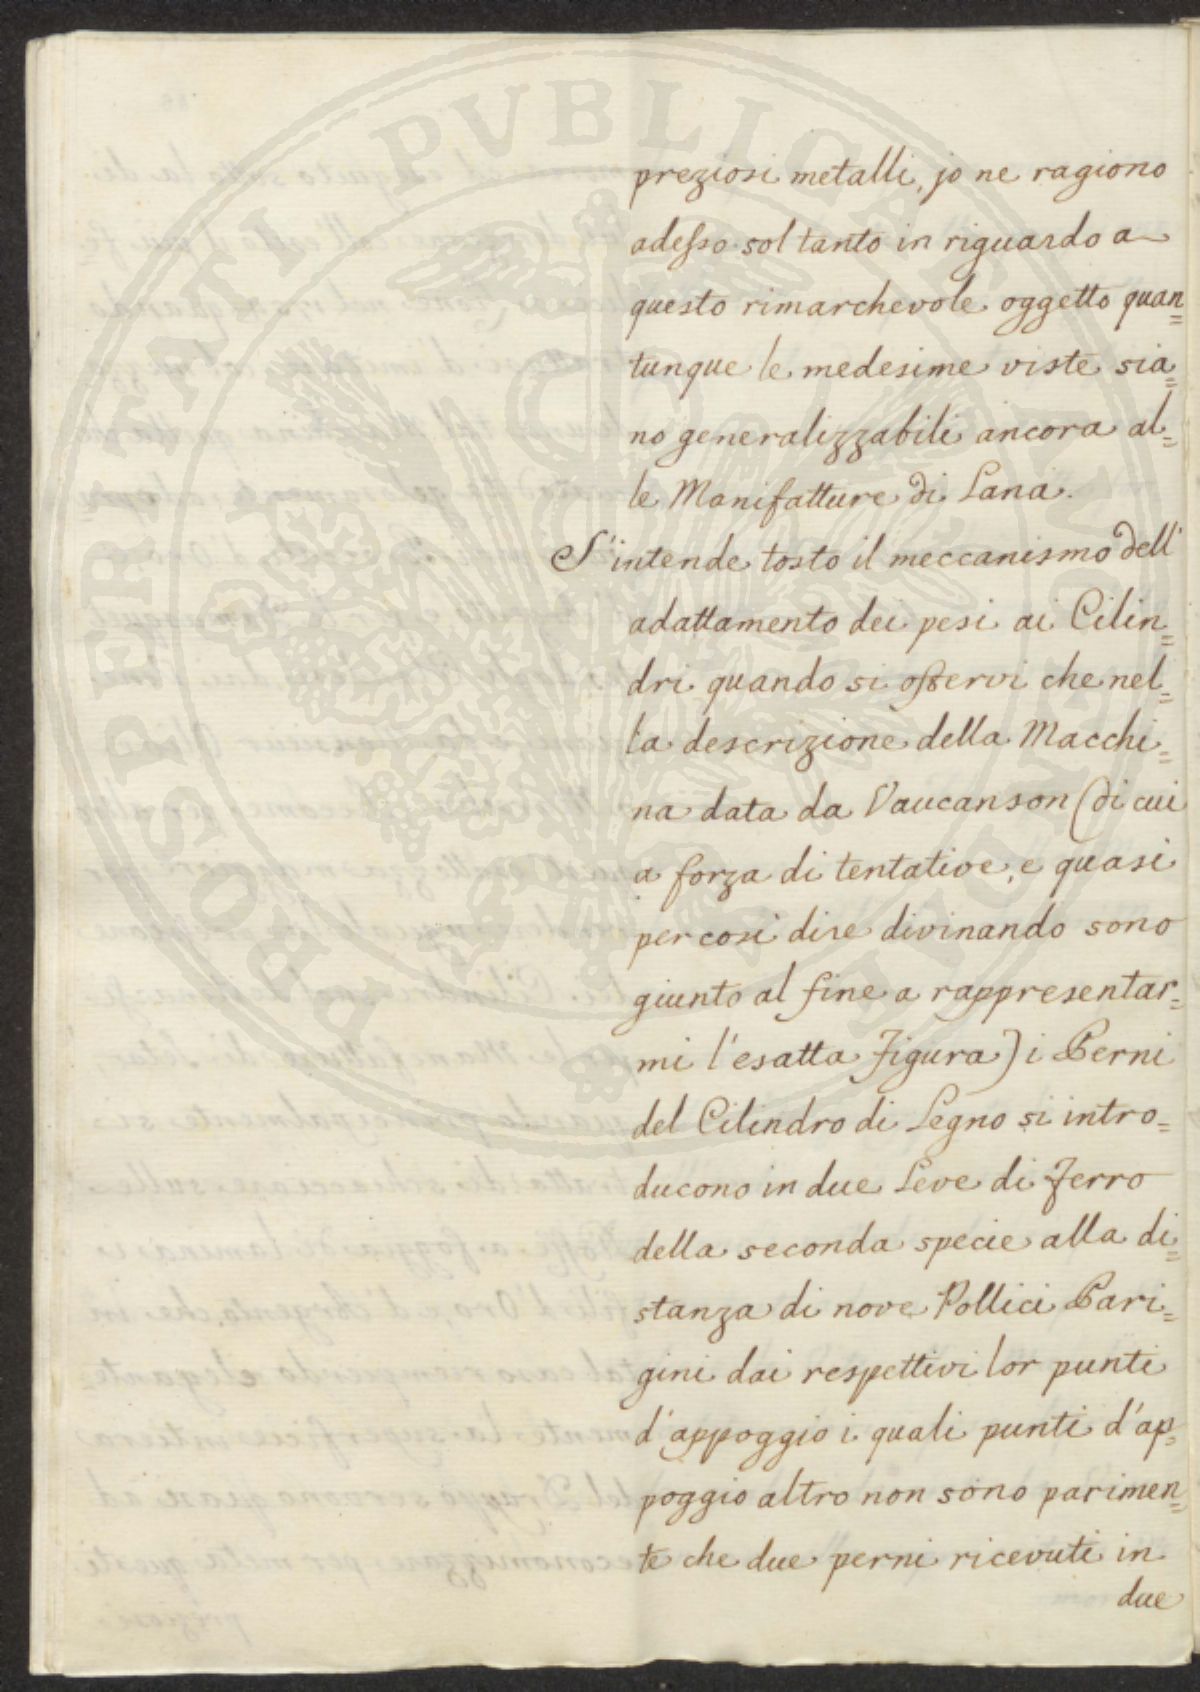 preziosi metalli, jo ne ragiono
adesso soltanto in riguardo a
questo rimarchevole oggetto quan=
tunque le medesime viste sia=
no generalizzabili ancora al=
le Manifatture di Lana.
S'intende tosto il meccanismo dell'
adattamento dei pesi ai Cilin=
dri quando si osservi che nel=
la descrizione della Macchi=
na data da Vaucanson (di cui
a forza di tentative, e quasi
per così dire divinando sono
giunto al fine a rappresentar=
mi l'esatta Figura) i Perni
del Cilindro di Legno si intro=
ducono in due Leve di Ferro
della seconda specie alla di=
stanza di nove Pollici Pari=
gini dai respettivi lor punti
d'appoggio i quali punti d'ap=
poggio altro non sono parimen=
te che due perni ricevuti in
due
PROSPERITATI PUBLICAE AUGENDAE